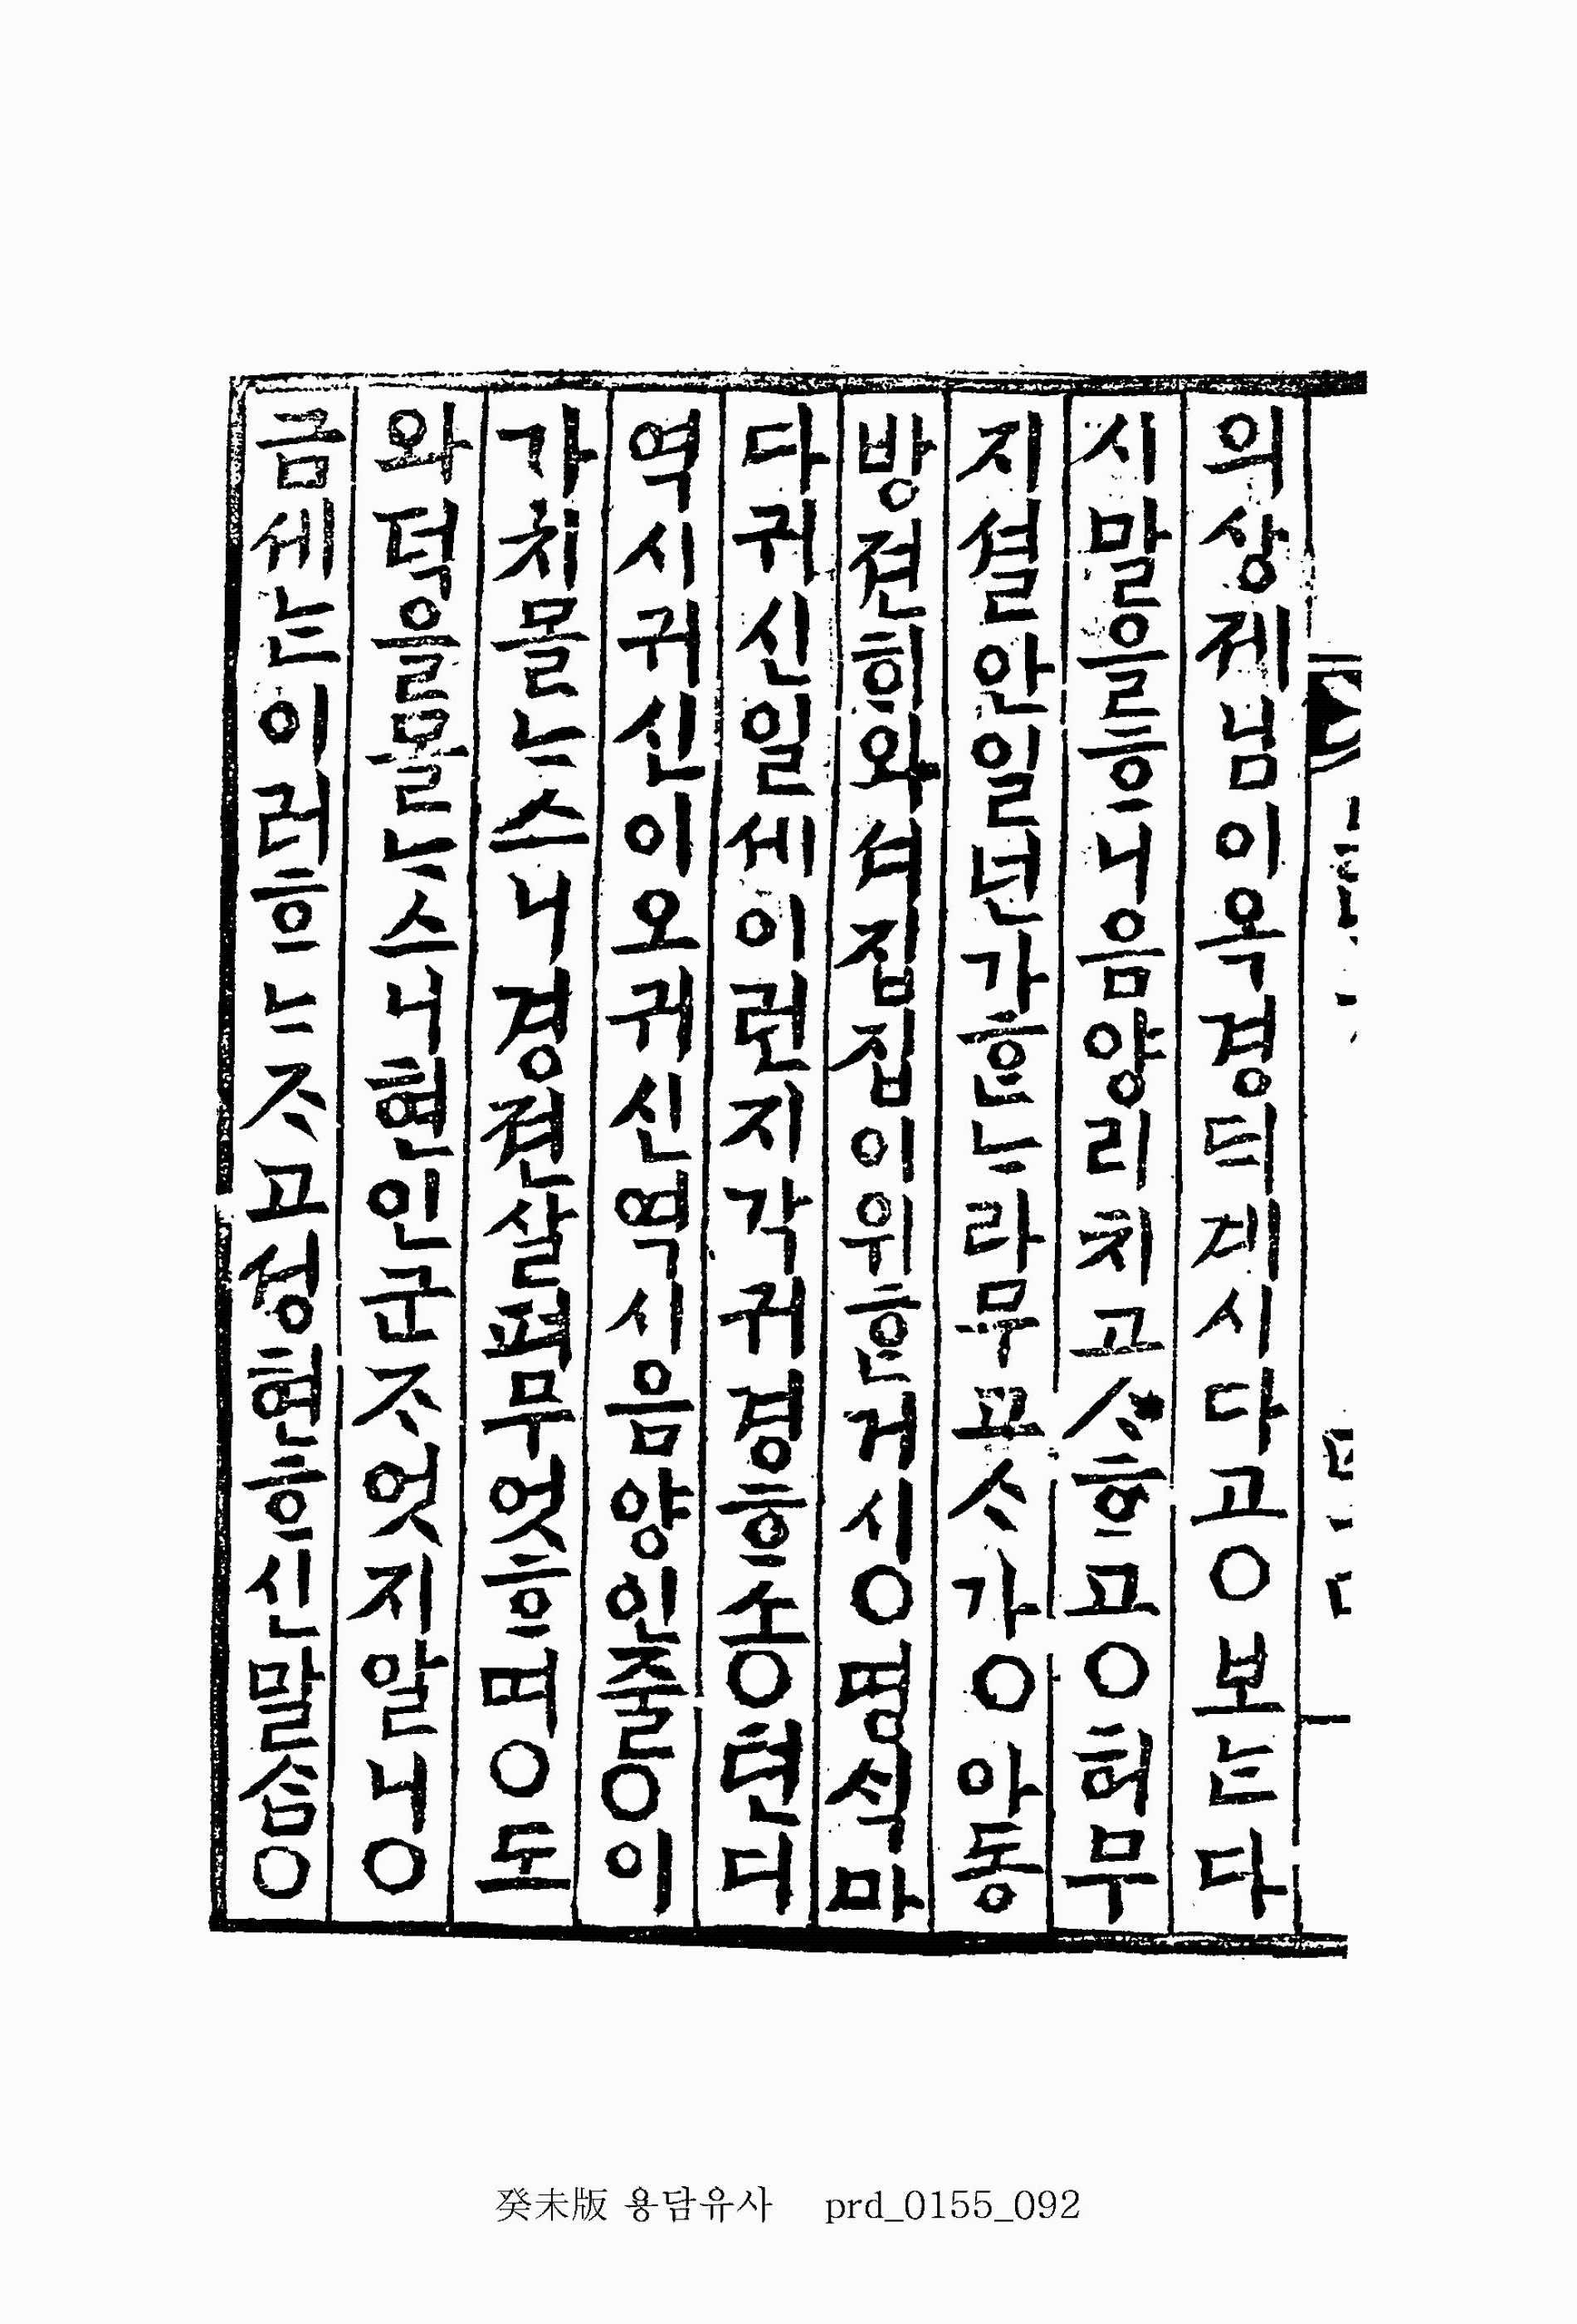 의상졔님이옥경ᄃᆡ계시다고○보ᄂᆞᆫ다
시말을ᄒᆞ니음양리치고ᄉᆞᄒᆞ고○허무
지셜안일넌가ᄒᆞᆫᄂᆞ라무고ᄉᆞ가○아동
방젼ᄒᆡ와셔집집이위ᄒᆞᆫ거시○명식마
다귀신일세이런지각귀경ᄒᆞ소○텬디
역시귀신이오귀신역시음양인줄○이
가치몰ᄂᆞ스니경젼살펴무엇ᄒᆞ며○도
와덕을몰ᄂᆞ스니현인군ᄌᆞ엇지알니○
금세ᄂᆞᆫ이러ᄒᆞᄂᆞᄌᆞ고셩현ᄒᆞ신말ᄉᆞᆷ○
癸未版 용담유사 prd_0155_092